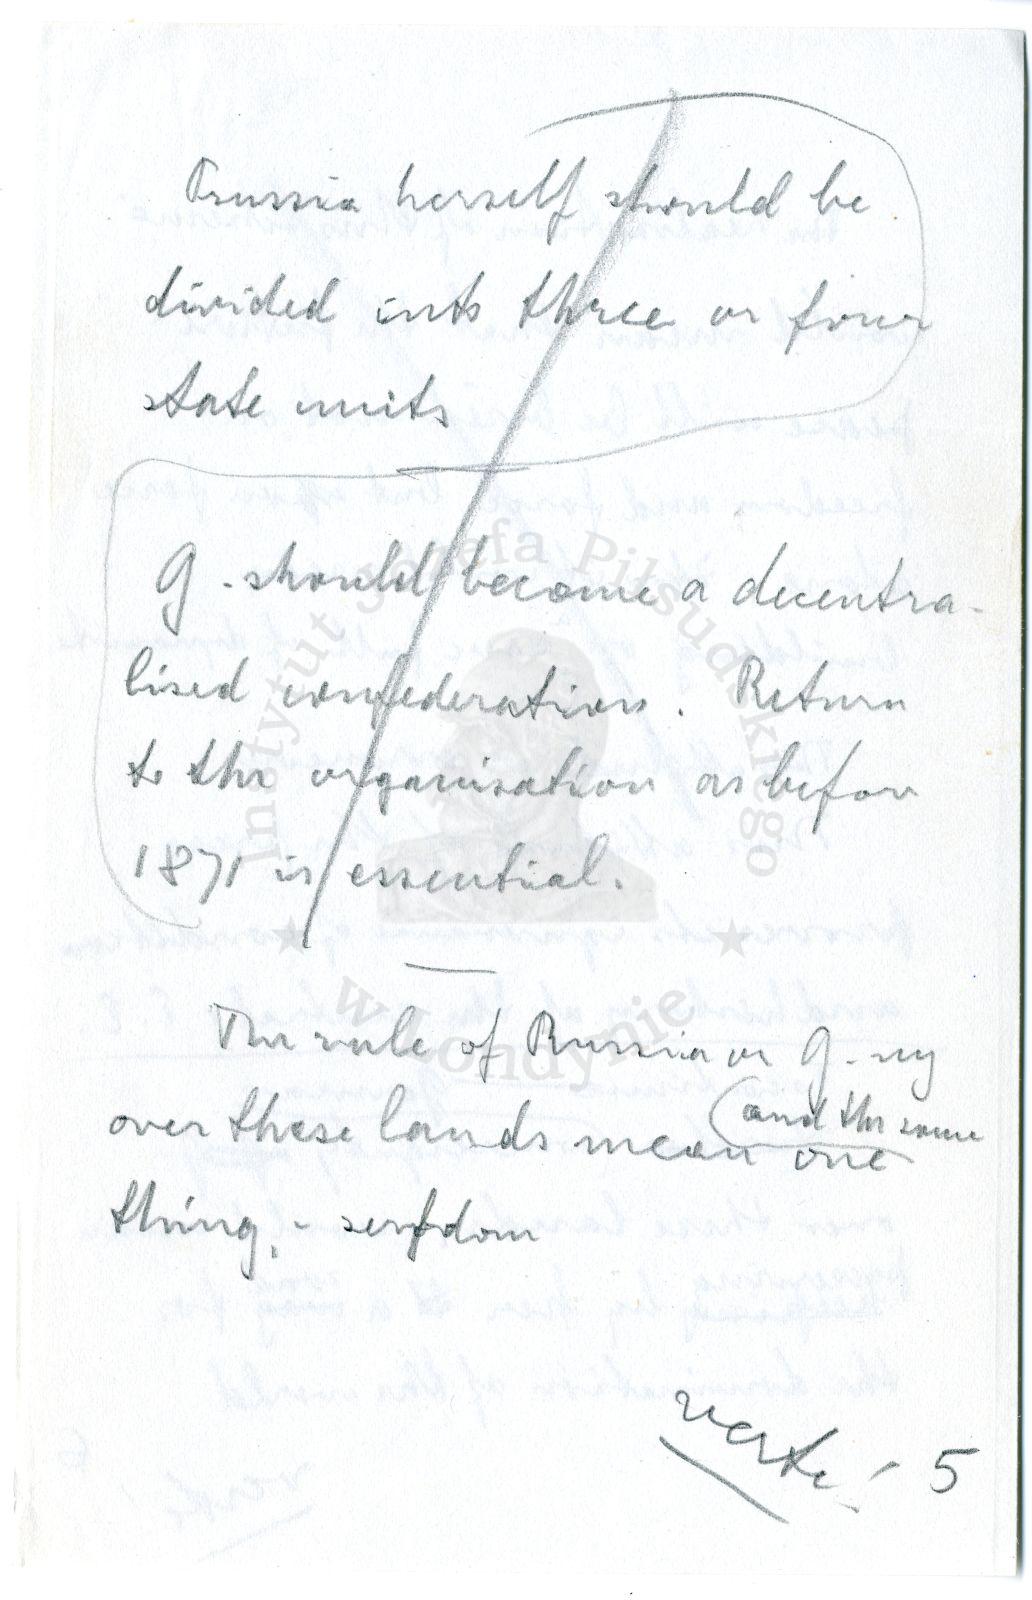 Prussia herself should be
divided into three or four
state units
G. should become a decentra-
lised confederation. Return
to the organisation as before
1871 is essential.
The rule of Russia or G-ny
over these lands mean one
and the same
thing, - serfdom
verte! 5
Instytut Józefa Piłsudskiego
w Londynie